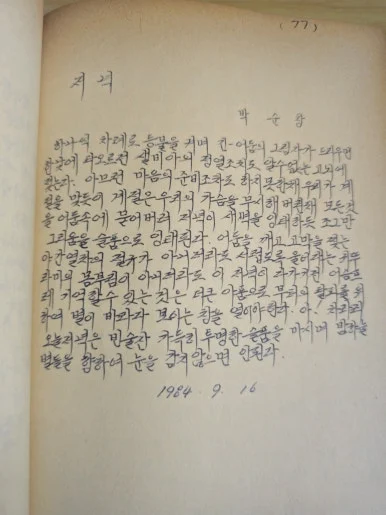 (77)
저녁
박 순
하나씩 차례로 등불을 켜며 긴 어둠의 그림자가 드리우면
한낮에 타오르던 샐비아의 정열조차도 알수없는 고뇌에
젖는다. 아무런 마음의 준비조차도 하지못한채 우리가 계
절을 맞듯이 계절은 우리의 가슴을 무시해 버린채 모든것
을 어둠속에 묻어버려 저녁이 새벽을 잉태하듯 조그만
그리움을 슬픔으로 잉태된다. 어둠을 깨고 고막을 찢는
야간열차의 절규가 아니더라도 서럽도록 울어대는 귀뚜
라미의 몸부림이 아니더라도 이 저녁이 다가기전 어슴프
레 기억할수 있는 것은 더큰 아픔으로 부터의 탈피를 위
하여 별이 바라다 보이는 창을 열어야한다. 아. 차라리
오늘저녁은 빈술잔 가득히 투명한 슬픔을 마시며 밤하늘
별들을 향하여 눈을 감지않으면 안된다.
1984. 9. 16